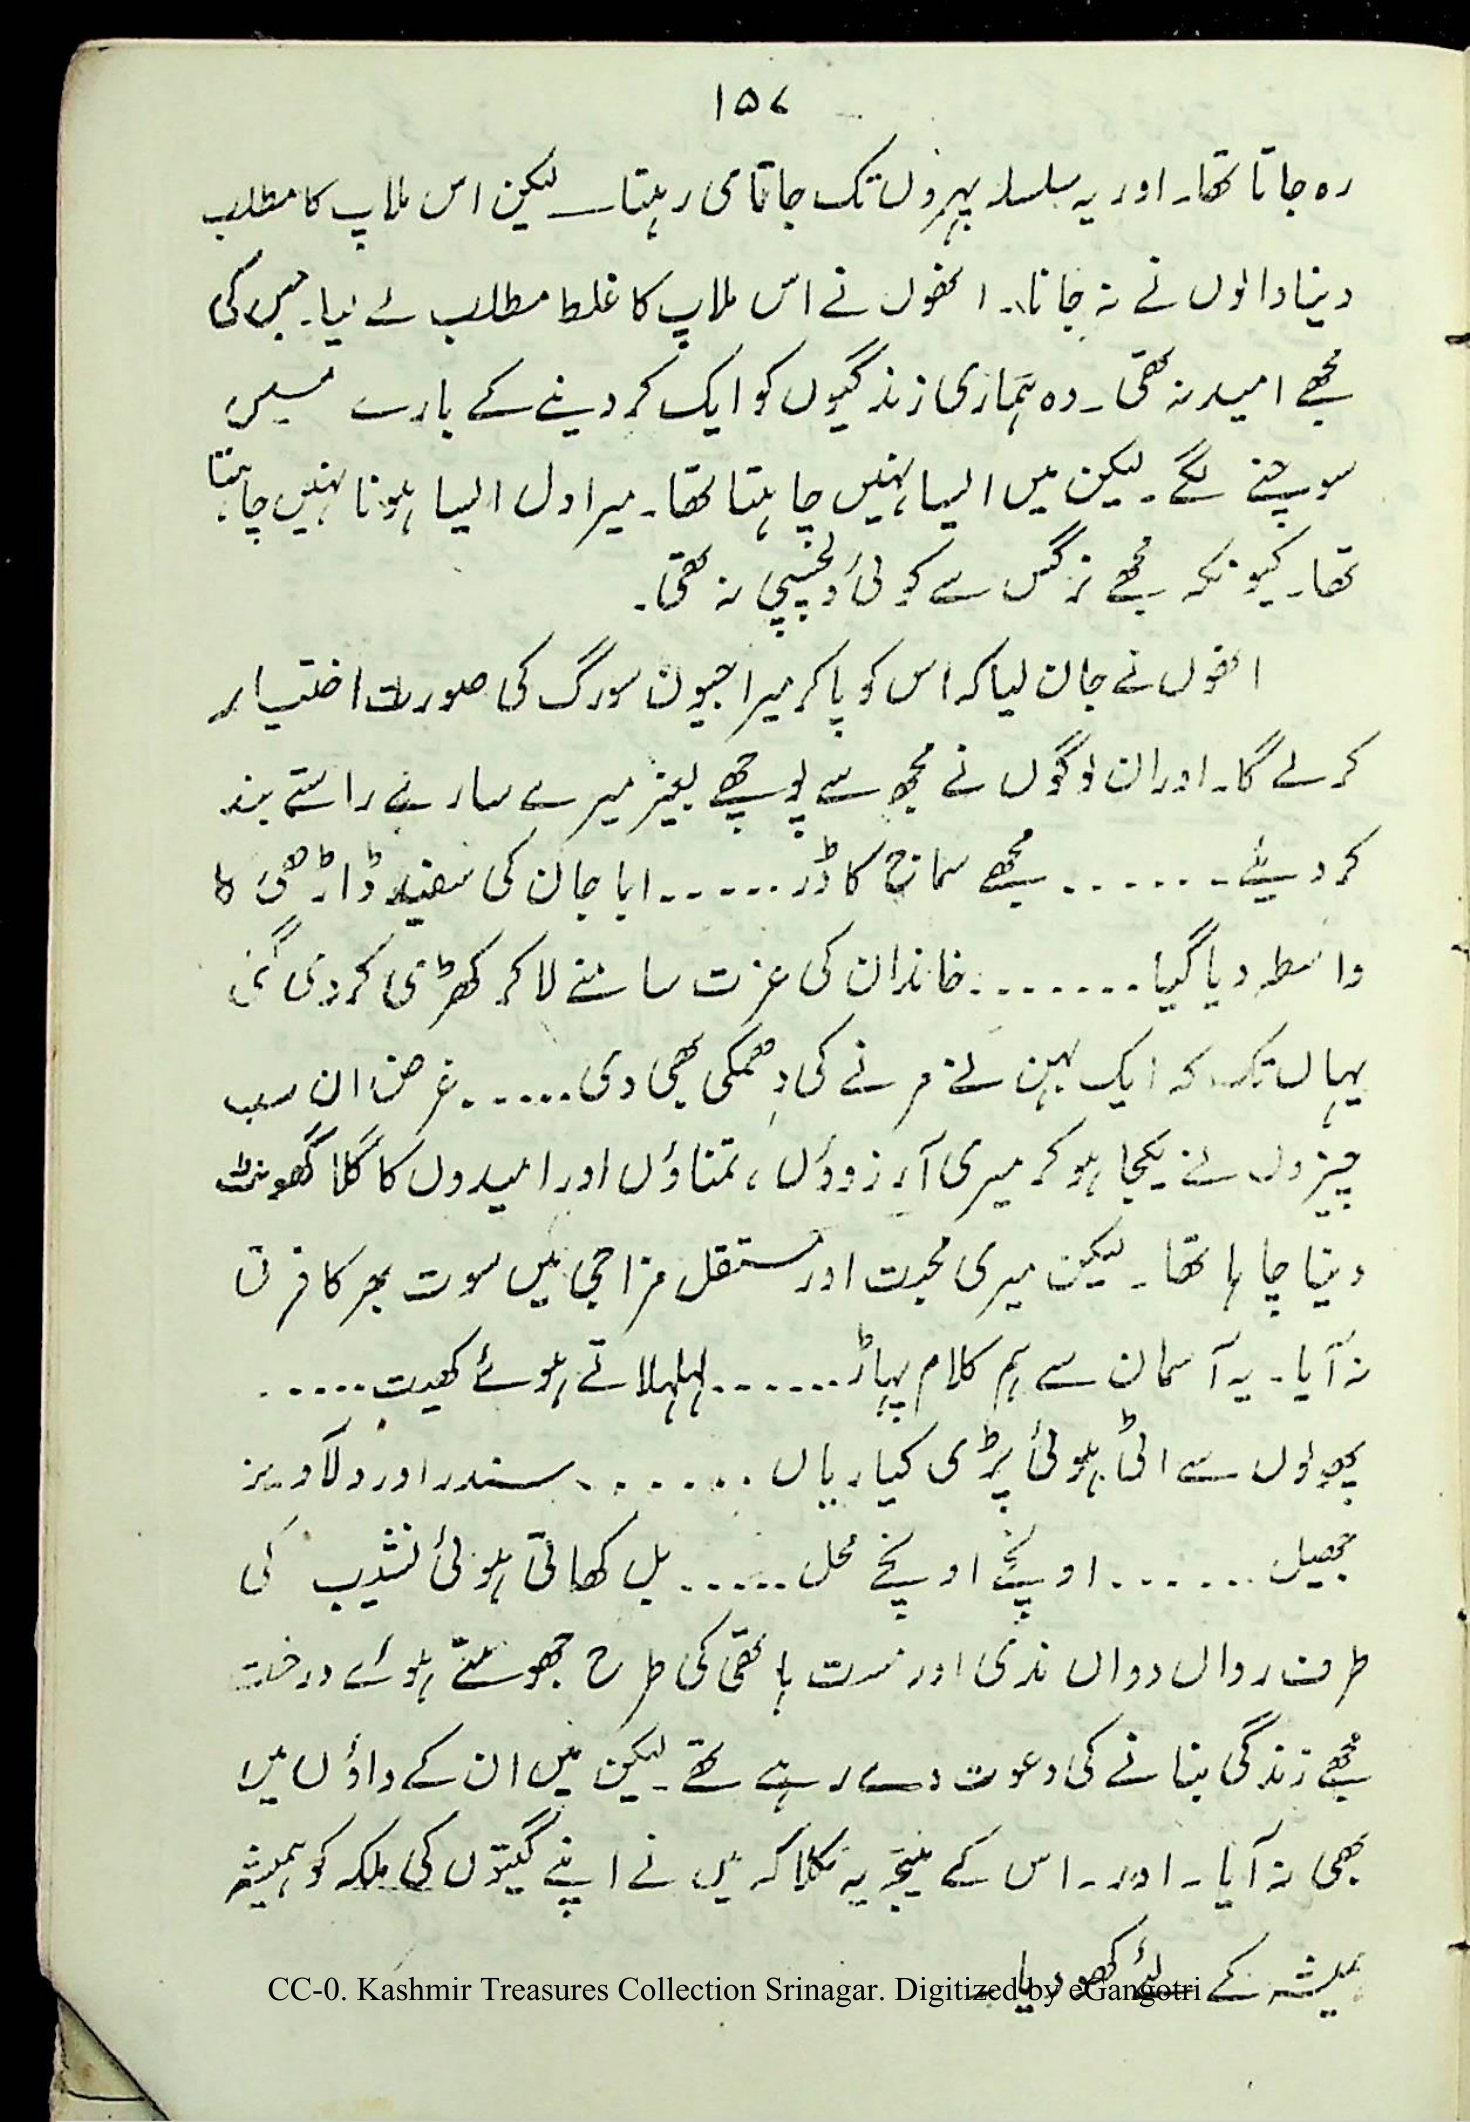 ۱۵۷
رہ جاتا تھا۔ اور یہ سلسلہ پہروں تک جاتا ہی رہتا۔ لیکن اس ملاپ کا مطلب
دینا والوں نے نہ جانا۔ انھوں نے اس ملاپ کا غلط مطلب لے لیا۔ جس کی
مجھے امید نہ تھی۔ وہ ہماری زندگیوں کو ایک کر دینے کے بارے میں
سوچنے لگے۔ لیکن میں ایسا نہیں چاہتا تھا۔ میرا دل ایسا ہونا نہیں چاہتا
تھا۔ کیونکہ مجھے نرگس سے کوئی دلچسپی نہ تھی۔
انھوں نے جان لیا کہ اس کو پا کر میرا جیون سورگ کی صورت اختیار
کر لے گا۔ اور ان لوگوں نے مجھ سے پوچھے بغیر میرے سارے راستے بند
کر دیئے۔ ۔ ۔ ۔ ۔ ۔ مجھے سماج کا ڈر ۔ ۔ ۔ ۔ ۔ ابا جان کی سفید ڈاڑھی کا
واسطہ دیا گیا ۔ ۔ ۔ ۔ ۔ ۔ ۔ خاندان کی عزت سامنے لا کر کھڑی کر دی گئی
یہاں تک کہ ایک بہن نے مرنے کی دھمکی بھی دی ۔ ۔ ۔ ۔ ۔ غرض ان سب
چیزوں نے یکجا ہو کر میری آرزوؤں، تمناؤں اور امیدوں کا گلا گھونٹ
دینا چاہا تھا۔ لیکن میری محبت اور مستقل مزاجی میں سوت بھر کا فرق
نہ آیا۔ یہ آسمان سے ہم کلام پہاڑ ۔ ۔ ۔ ۔ ۔ ۔ لہلہلاتے ہوئے کھیت ۔ ۔ ۔ ۔ ۔
پھولوں سے اٹی ہوئی پڑی کیاریاں ۔ ۔ ۔ ۔ ۔ ۔ سندر اور دلآویز
جھیل ۔ ۔ ۔ ۔ ۔ ۔ اونچے اونچے محل ۔ ۔ ۔ ۔ ۔ بل کھاتی ہوئی نشیب کی
طرف رواں دواں ندی اور مست ہاتھی کی طرح جھومتے ہوئے درخت
مجھے زندگی بنانے کی دعوت دے رہے تھے۔ لیکن میں ان کے داؤں میں
بھی نہ آیا۔ اور۔ اس کے نتیجہ یہ نکلا کہ میں نے اپنے گیتوں کی ملکہ کو ہمیشہ
ہمیشہ کے لئے کھو دیا۔
CC-0. Kashmir Treasures Collection Srinagar. Digitized by eGangotri